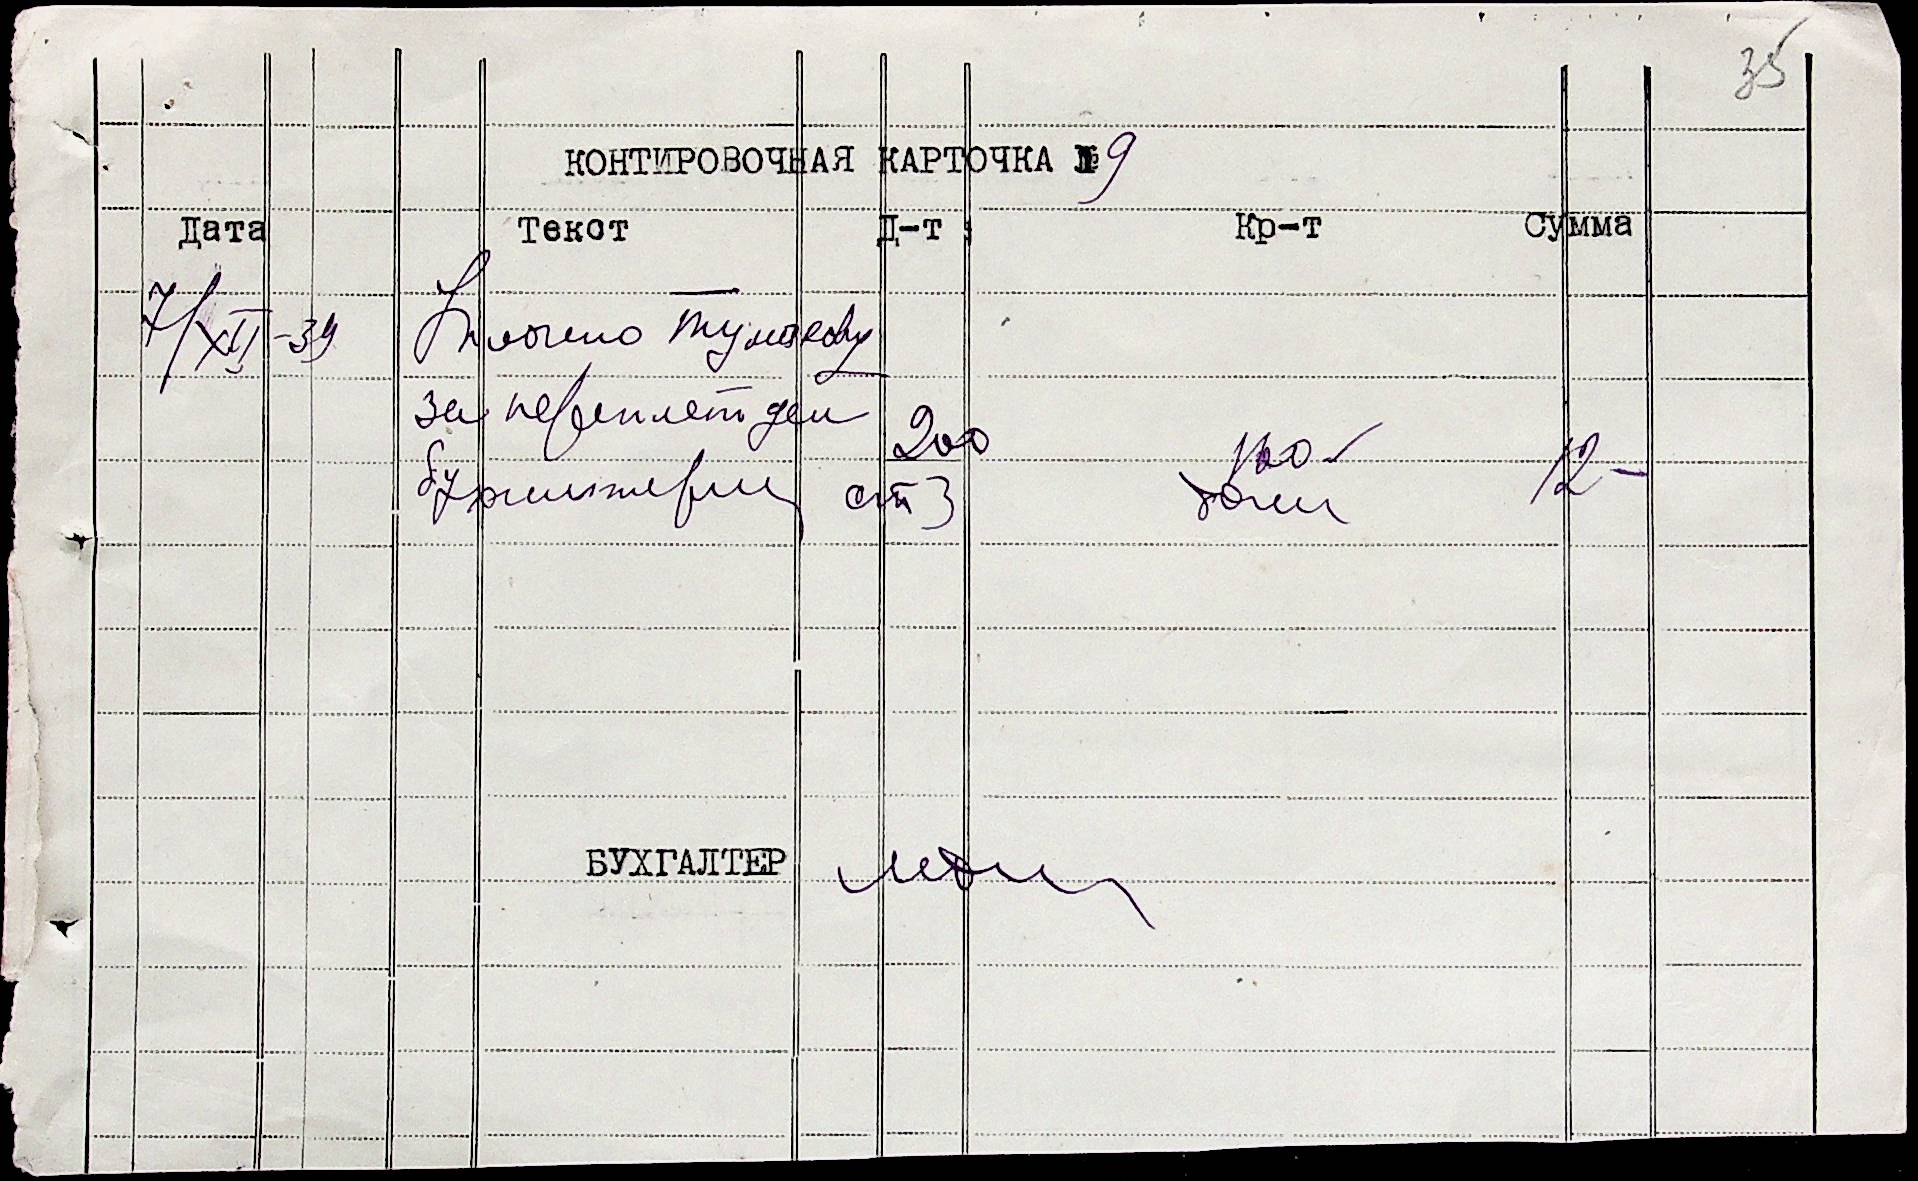 35
КОНТИРОВОЧНАЯ КАРТОЧКА № 9
Дата Текст Д-т Кр-т Сумма
7/XII-39 Уплочено Тумакову
за переплет дел
бухгалтерии 200 ст 3 100 12-
БУХГАЛТЕР